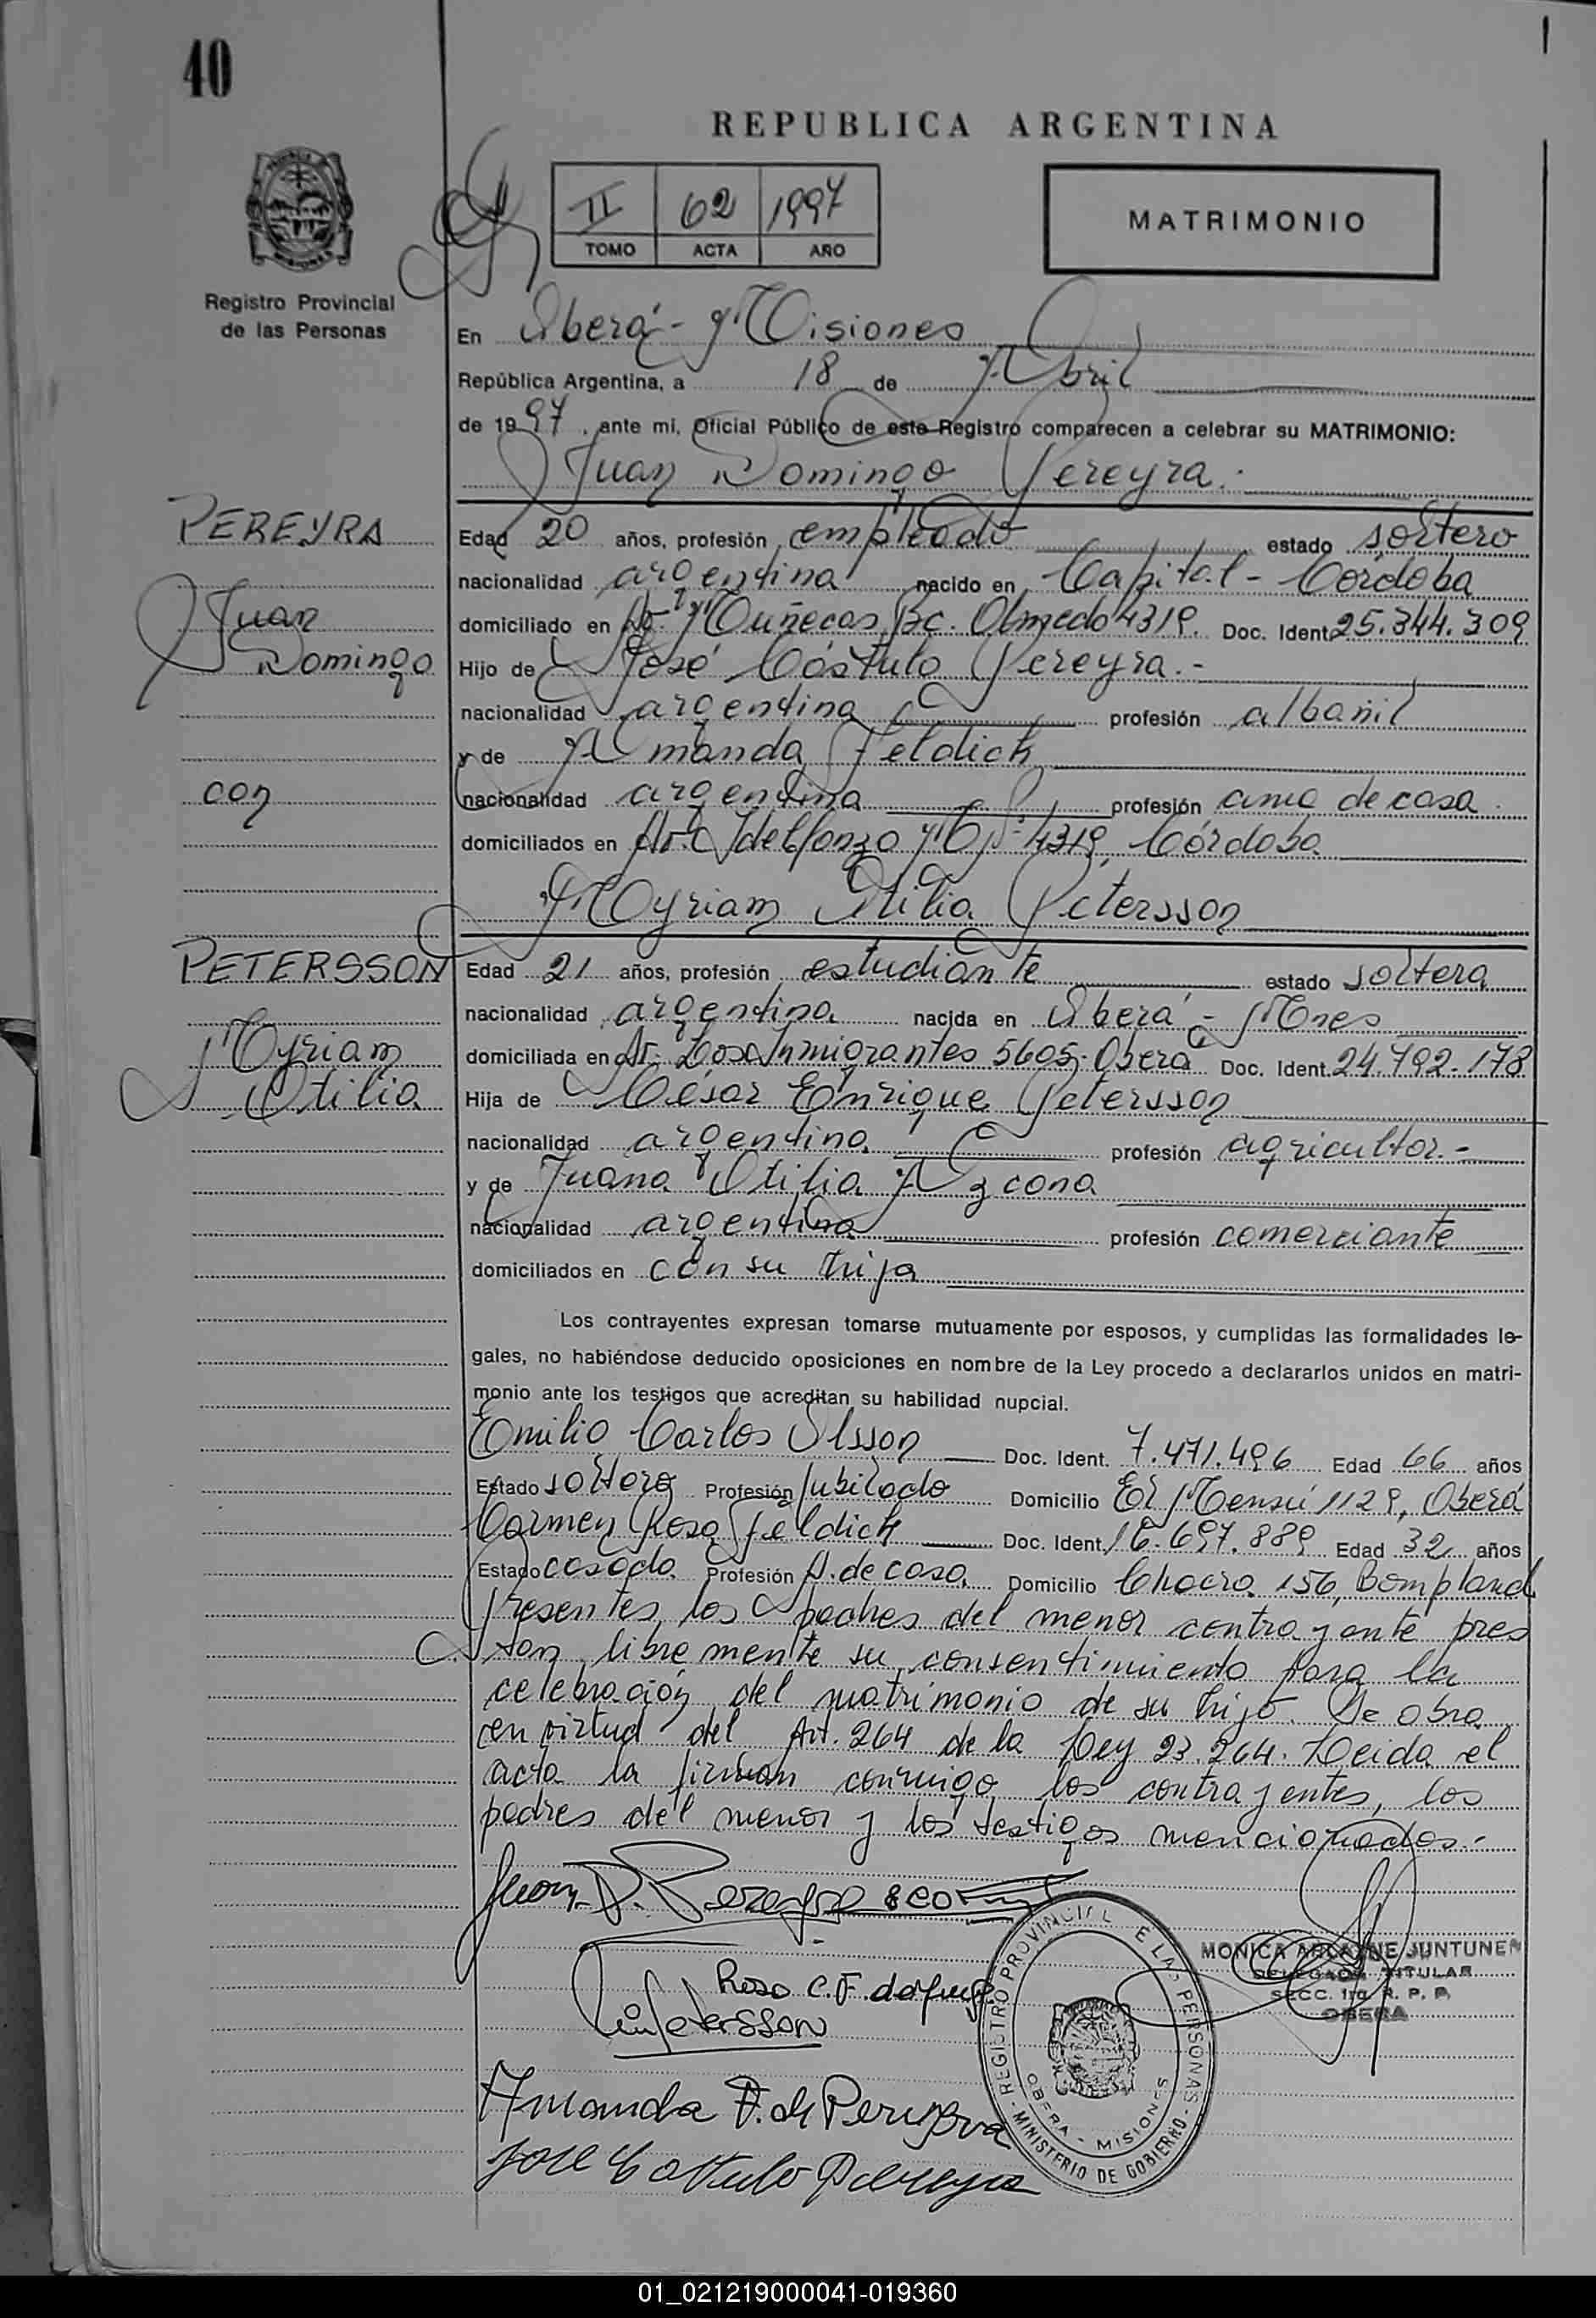 40
REPUBLICA ARGENTINA
II 62 1997
TOMO ACTA AÑO
MATRIMONIO
Registro Provincial
de las Personas
En Oberá - Misiones
República Argentina, a 18 de Abril
de 1997, ante mi, Oficial Público de este Registro comparecen a celebrar su MATRIMONIO:
Juan Domingo Pereyra.
PEREYRA
Juan
Domingo
con
Edad 20 años, profesión empleado estado soltero
nacionalidad argentina nacido en Capital - Córdoba
domiciliado en Av. Muñecas Bc. Olmedo 4319. Doc. Ident. 25.344.309
Hijo de José Cástulo Pereyra.-
nacionalidad argentina profesión albañil
y de Amanda Feldick
nacionalidad argentina profesión ama de casa.
domiciliados en Av. Idelfonzo M 4319, Córdoba
Myriam Otilia Petersson
PETERSSON
Myriam
Otilia
Edad 21 años, profesión estudiante estado soltera
nacionalidad argentina nacida en Oberá - Mnes
domiciliada en Av. Los Inmigrantes 5605 - Oberá Doc. Ident. 24.792.178
Hija de César Enrique Petersson
nacionalidad argentina profesión agricultor.-
y de Juana Otilia Azcona
nacionalidad argentina profesión comerciante
domiciliados en con su hija
Los contrayentes expresan tomarse mutuamente por esposos, y cumplidas las formalidades le-
gales, no habiéndose deducido oposiciones en nombre de la Ley procedo a declararlos unidos en matri-
monio ante los testigos que acreditan su habilidad nupcial.
Emilio Carlos Olsson Doc. Ident. 7.471.496 Edad 66 años
Estado soltero Profesión Jubilado Domicilio El Mensú 1129, Oberá
Carmen Rosa Feldick Doc. Ident. 16.697.889 Edad 32 años
Estado casada Profesión A. de casa Domicilio Chacra 156, Bompland
Presentes los padres del menor contrayente pres
tan libremente su consentimiento para la
celebración del matrimonio de su hijo. Se obra
en virtud del Art. 264 de la Ley 23.264. Leida el
acta la firman conmigo los contrayentes, los
padres del menor y los testigos mencionados.-
Juan D. Pereyra
Rosa C. F. de
Petersson
MONICA ARLAINE JUNTUNEN
DELEGADA TITULAR
SECC. 1ra. R. P. P.
OBERA
REGISTRO PROVINCIAL DE LAS PERSONAS - MINISTERIO DE GOBIERNO -
OBERA - MISIONES
Amanda F. de Pereyra
José Castulo Pereyra
01_021219000041-019360